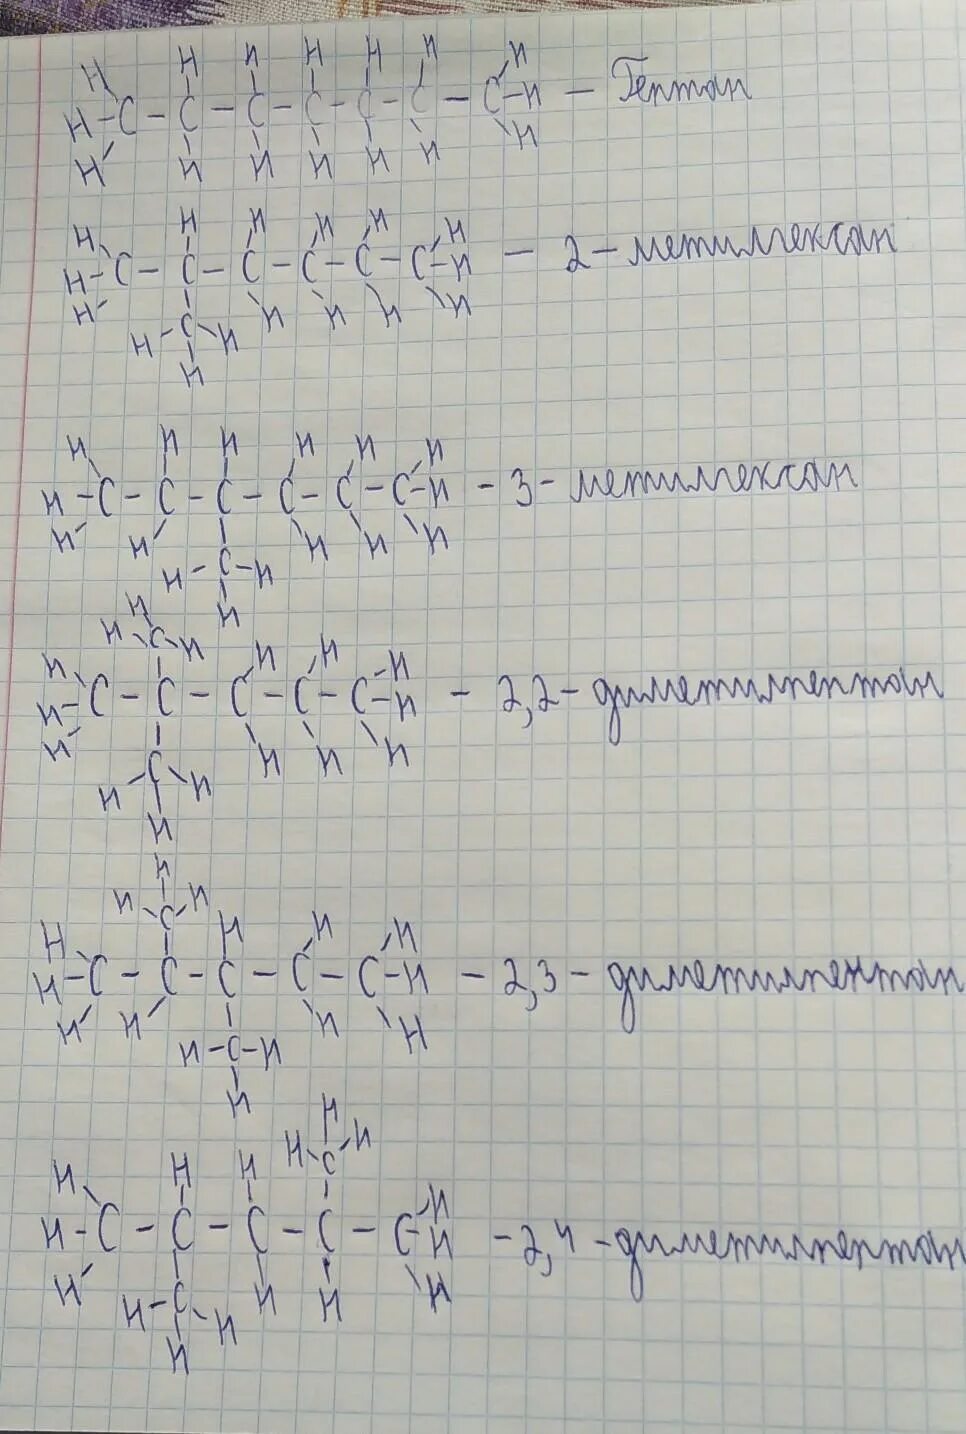 H H H H H H H
H - C - C - C - C - C - C - C - H - Гептан
H H H H H H H
H H H H H H
H - C - C - C - C - C - C - H - 2-метилгексан
H H H H H
H - C - H
H
H H H H H H
H - C - C - C - C - C - C - H - 3-метилгексан
H H H H H
H - C - H
H
H
H C H
H H H H
H - C - C - C - C - C - H - 2,2-диметилпентан
H H H H
H C H
H
H
H C H
H H H H
H - C - C - C - C - C - H - 2,3-диметилпентан
H H H H
H - C - H
H
H
H C H
H H H H
H - C - C - C - C - C - H - 2,4-диметилпентан
H H H H
H - C H
H